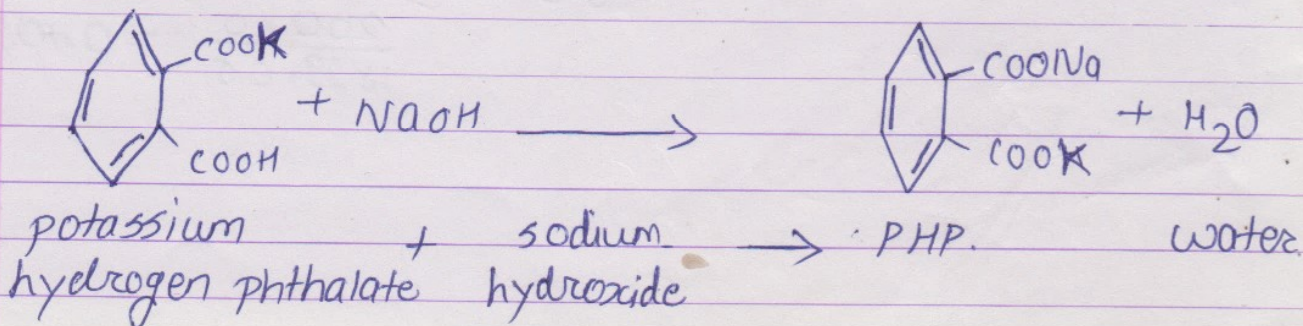 COOK
COOH
+ NaOH
COONa
COOK
+ H2O
potassium
hydrogen phthalate
+ sodium
hydroxide
PHP.
water